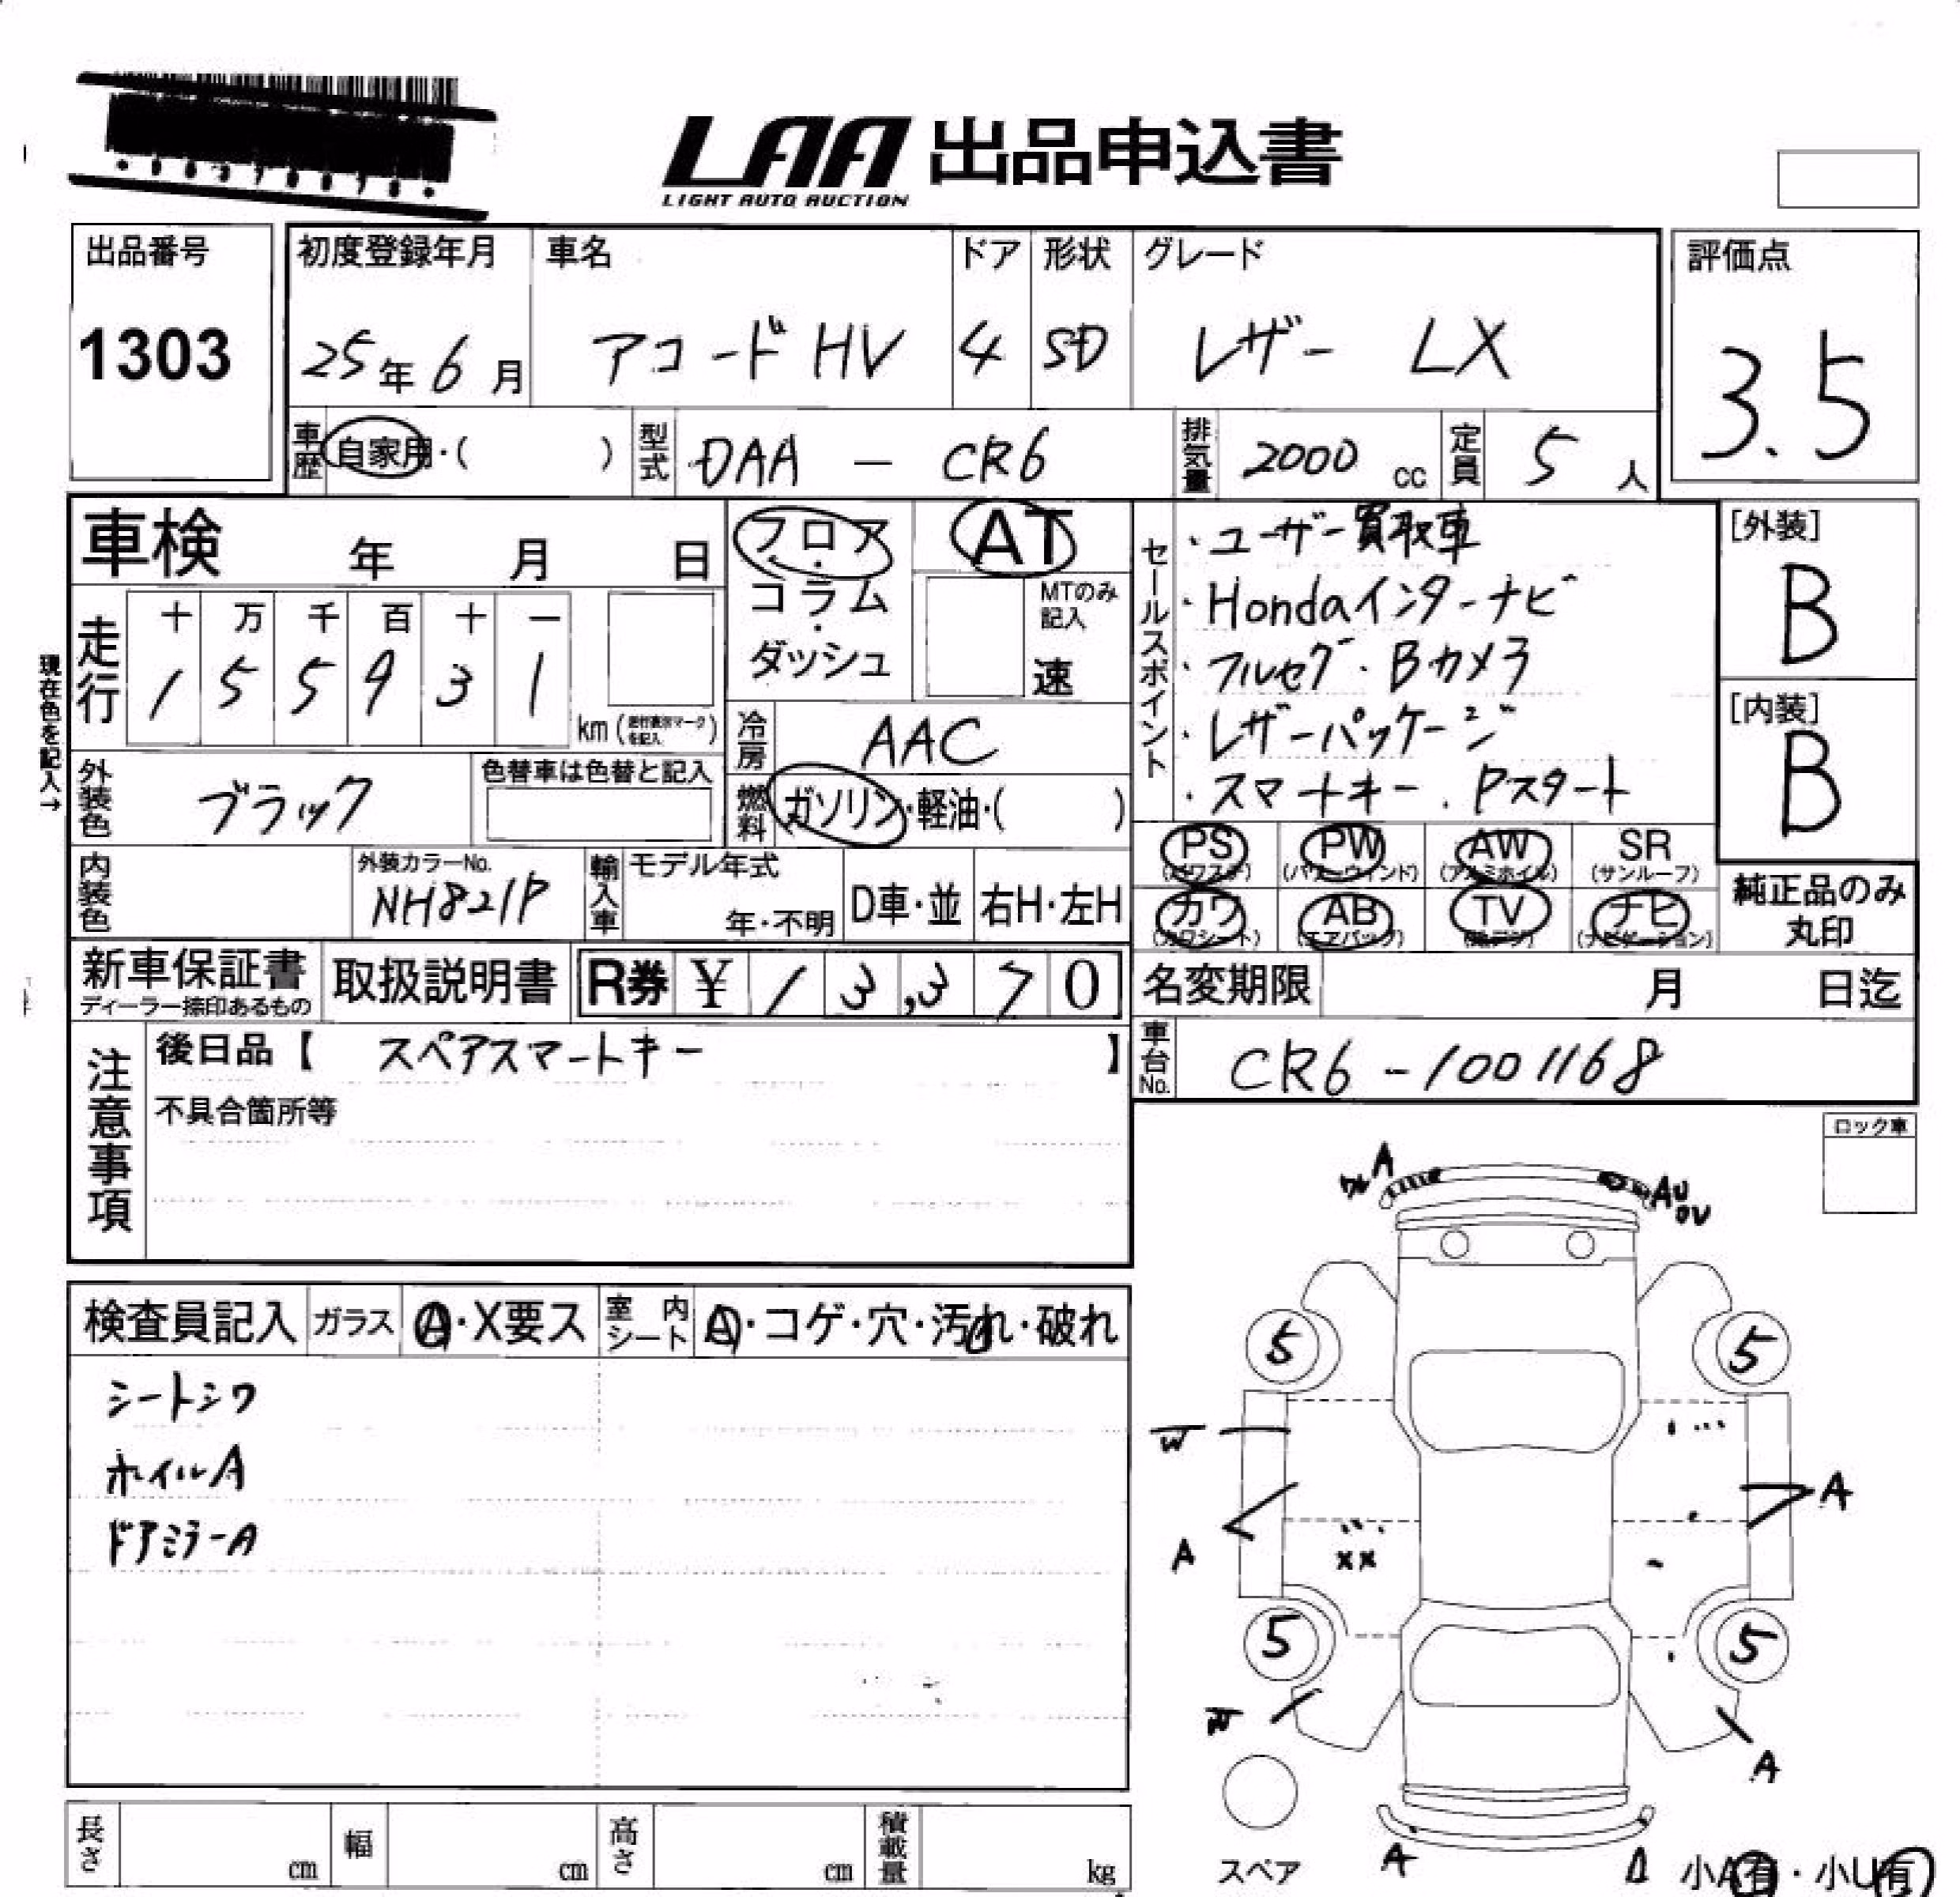 LAA 出品申込書
LIGHT AUTO AUCTION
出品番号
1303
初度登録年月 車名 ドア 形状 グレード
25年6月 アコードHV 4 SD レザー LX
評価点
3.5
車歴 自家用・( ) 型式 DAA － CR6 排気量 2000 cc 定員 5 人
車検 年 月 日
フロア・コラム・ダッシュ
AT
MTのみ記入
速
セールスポイント
・ユーザー買取車
・Hondaインターナビ
・フルセグ・Bカメラ
・レザーパッケージ
・スマートキー．Pスタート
[外装]
B
[内装]
B
現在色を記入→
走行 十 万 千 百 十 一
1 5 5 9 3 1
km (走行表示マークを記入)
冷房 AAC
外装色 ブラック 色替車は色替と記入
燃料 ガソリン・軽油・( )
内装色 外装カラーNo. NH821P 輸入車 モデル年式 年・不明 D車・並 右H・左H
PS (パワステ) PW (パワーウインド) AW (アルミホイル) SR (サンルーフ)
カワ (カワシート) AB (エアバック) TV (地デジ) ナビ (ナビゲーション)
純正品のみ丸印
新車保証書 ディーラー捺印あるもの 取扱説明書 R券 ¥ 13,370
名変期限 月 日迄
車台No. CR6-1001168
注意事項
後日品【 スペアスマートキー 】
不具合箇所等
ロック車
検査員記入 ガラス A・X要ス 室内シート A・コゲ・穴・汚れ・破れ
シートシワ
ホイルA
ドアミラーA
A
ワレ
AU
5 5
W
A
A
XX
5 5
W
A
A
スペア
小A有・小U有
長さ cm 幅 cm 高さ cm 積載量 kg